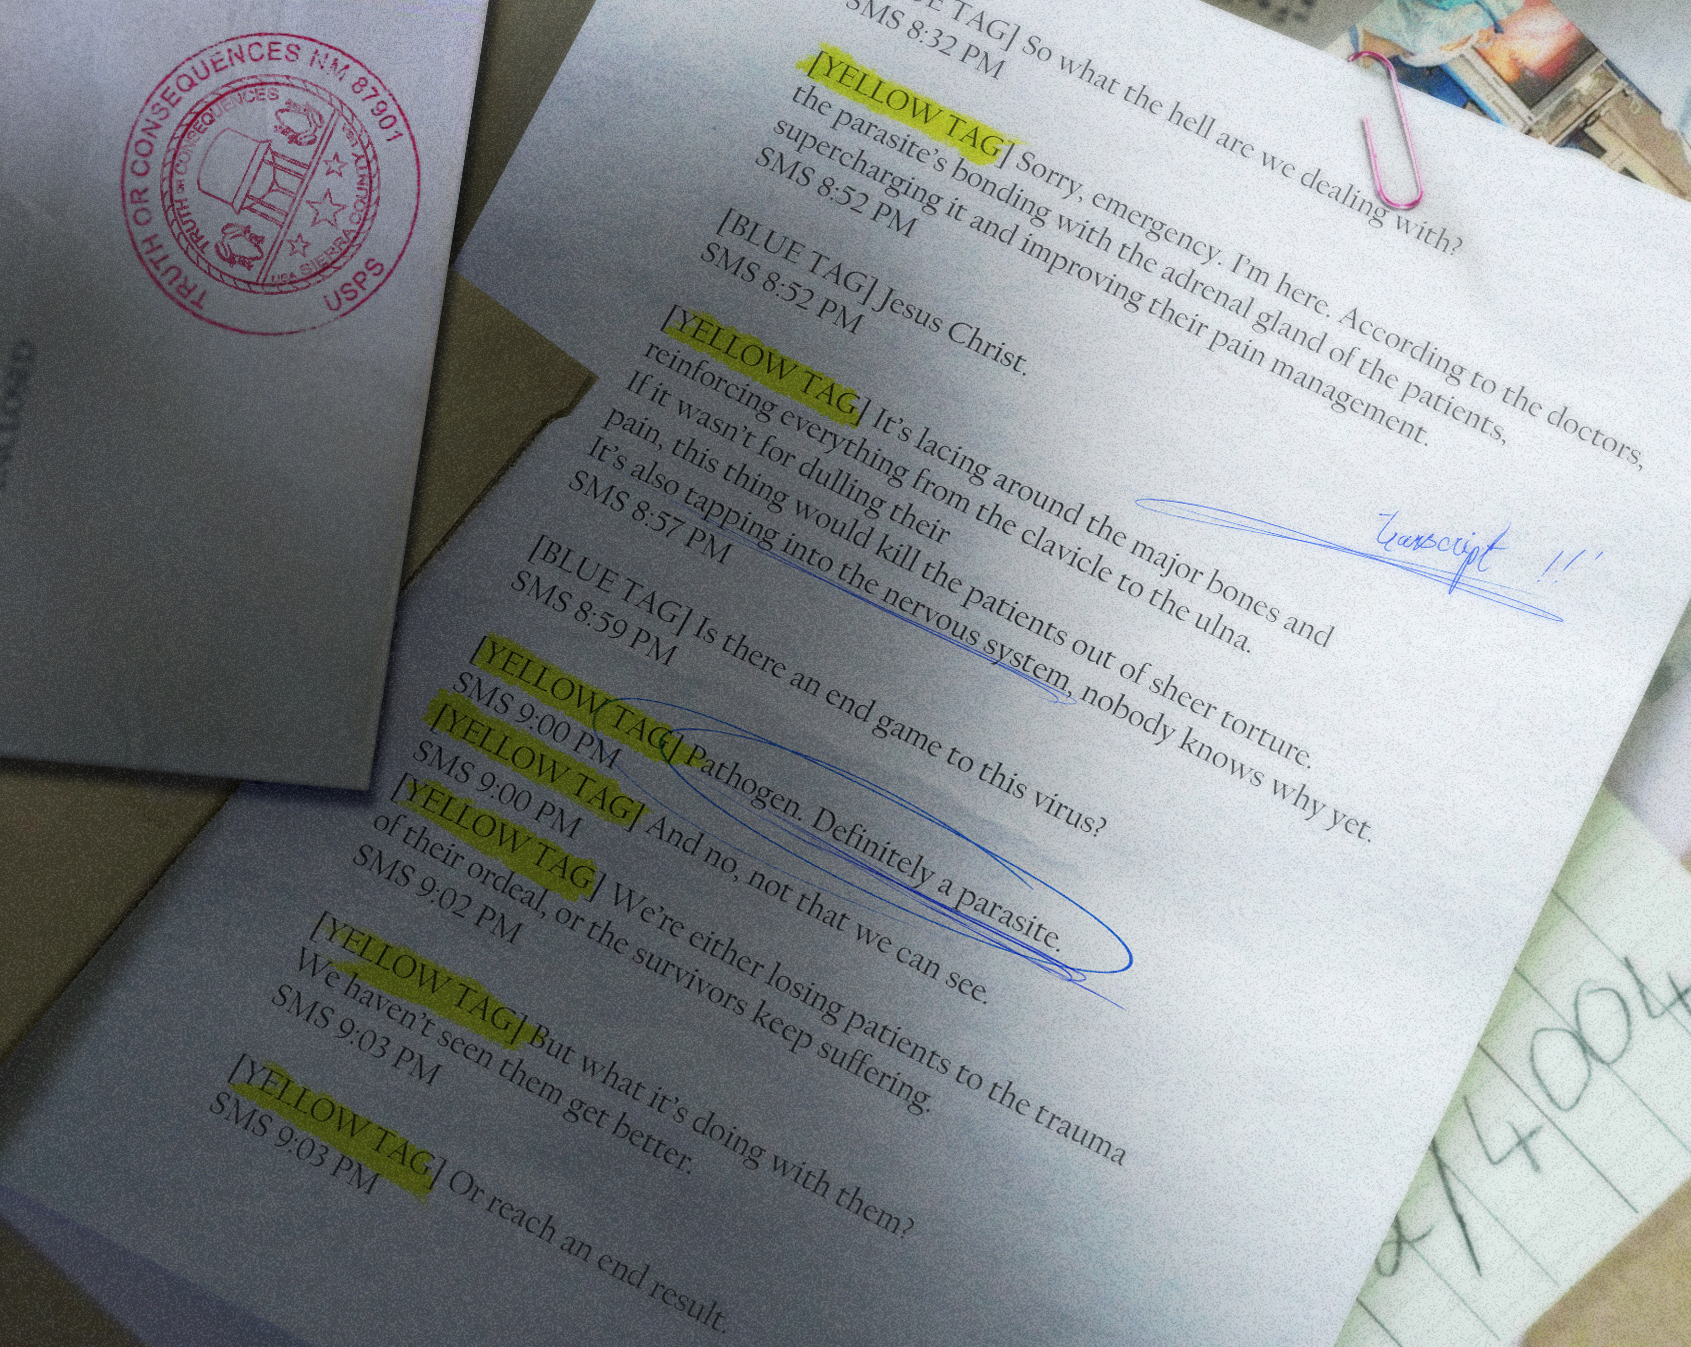 TRUTH OR CONSEQUENCES NM 87901
USPS
TRUTH OR CONSEQUENCES
USA SHERRA COUNTY
BLUE TAG] So what the hell are we dealing with?
SMS 8:32 PM
[YELLOW TAG] Sorry, emergency. I'm here. According to the doctors,
the parasite's bonding with the adrenal gland of the patients,
supercharging it and improving their pain management.
SMS 8:52 PM
[BLUE TAG] Jesus Christ.
SMS 8:52 PM
[YELLOW TAG] It's lacing around the major bones and
reinforcing everything from the clavicle to the ulna.
If it wasn't for dulling their
pain, this thing would kill the patients out of sheer torture.
It's also tapping into the nervous system, nobody knows why yet.
SMS 8:57 PM
transcript !!
[BLUE TAG] Is there an end game to this virus?
SMS 8:59 PM
[YELLOW TAG] Pathogen. Definitely a parasite.
SMS 9:00 PM
[YELLOW TAG] And no, not that we can see.
SMS 9:00 PM
[YELLOW TAG] We're either losing patients to the trauma
of their ordeal, or the survivors keep suffering.
SMS 9:02 PM
[YELLOW TAG] But what it's doing with them?
We haven't seen them get better.
SMS 9:03 PM
[YELLOW TAG] Or reach an end result.
SMS 9:03 PM
/4004